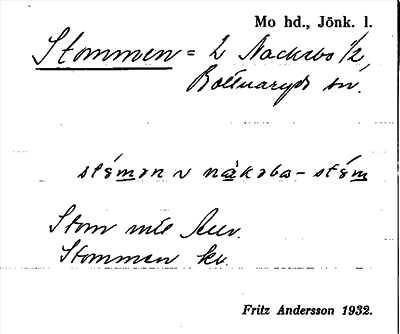 Mo hd., Jönk. l.
Stommen = 2 Nackebo 1/2,
Bottnaryds sn.
stémən v nàkəbo-stém
Stom
Stommen kv.
Fritz Andersson 1932.